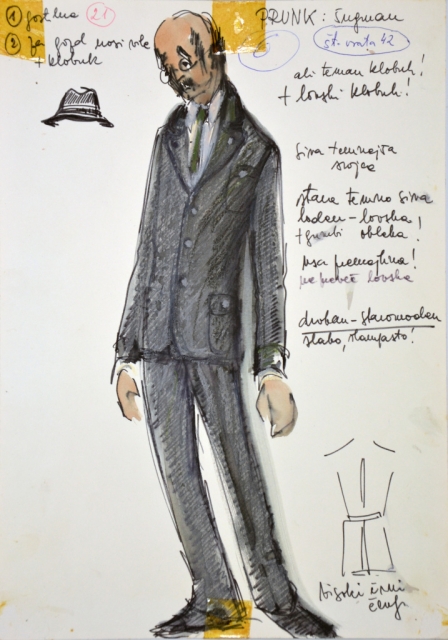 ① gostilna 21
② za gozd nosi isle
+ klobuk
PRUNK: Sugman
6
št. vrata 42
ali teman klobuk!
+ lovski klobuk!
siva temnejša
srajca
stara temno siva
loden - lovska
+ grubi obleka!
vsa premajhna!
ne preveč lovska
droban - staromoden
slabo, štanfasto!
visoki črni
čevlji